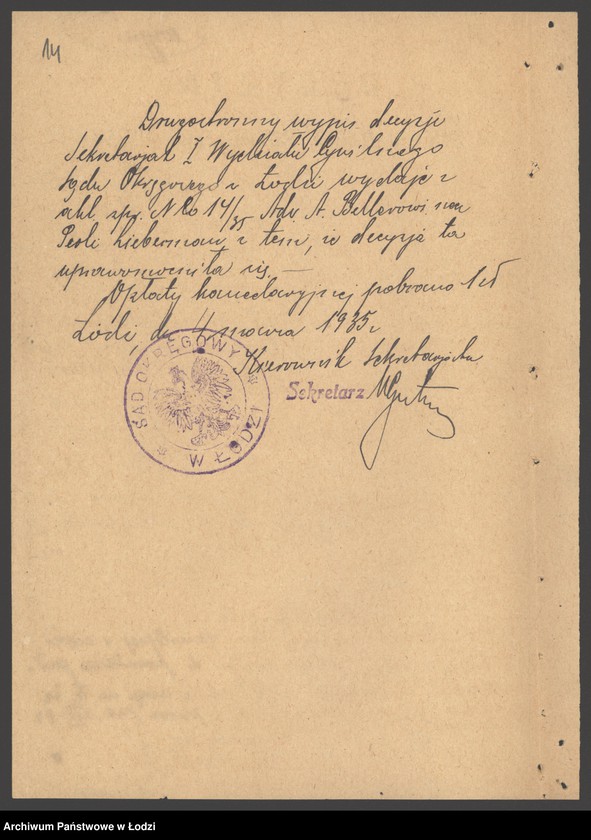 14
Drugostronny wypis decyzji
Sekretarjat I Wydziału Cywilnego
Sądu Okręgowego w Łodzi wydaje z
akt spr. N Co 14/35 Adv A. Bellerowi
Lieberman z tem, iż decyzja ta
uprawomocniła się. —
Opłaty kancelaryjnej pobrano 1 zł
Łódź, dn 4 marca 1935 r
Kierownik Sekretarjatu
Sekretarz
SĄD OKRĘGOWY * W ŁODZI *
Archiwum Państwowe w Łodzi